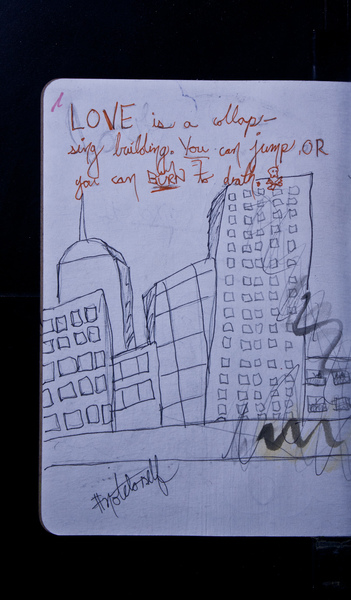 LOVE is a collap-
sing building. You can jump, OR
you can BURN to death.
#notetoself